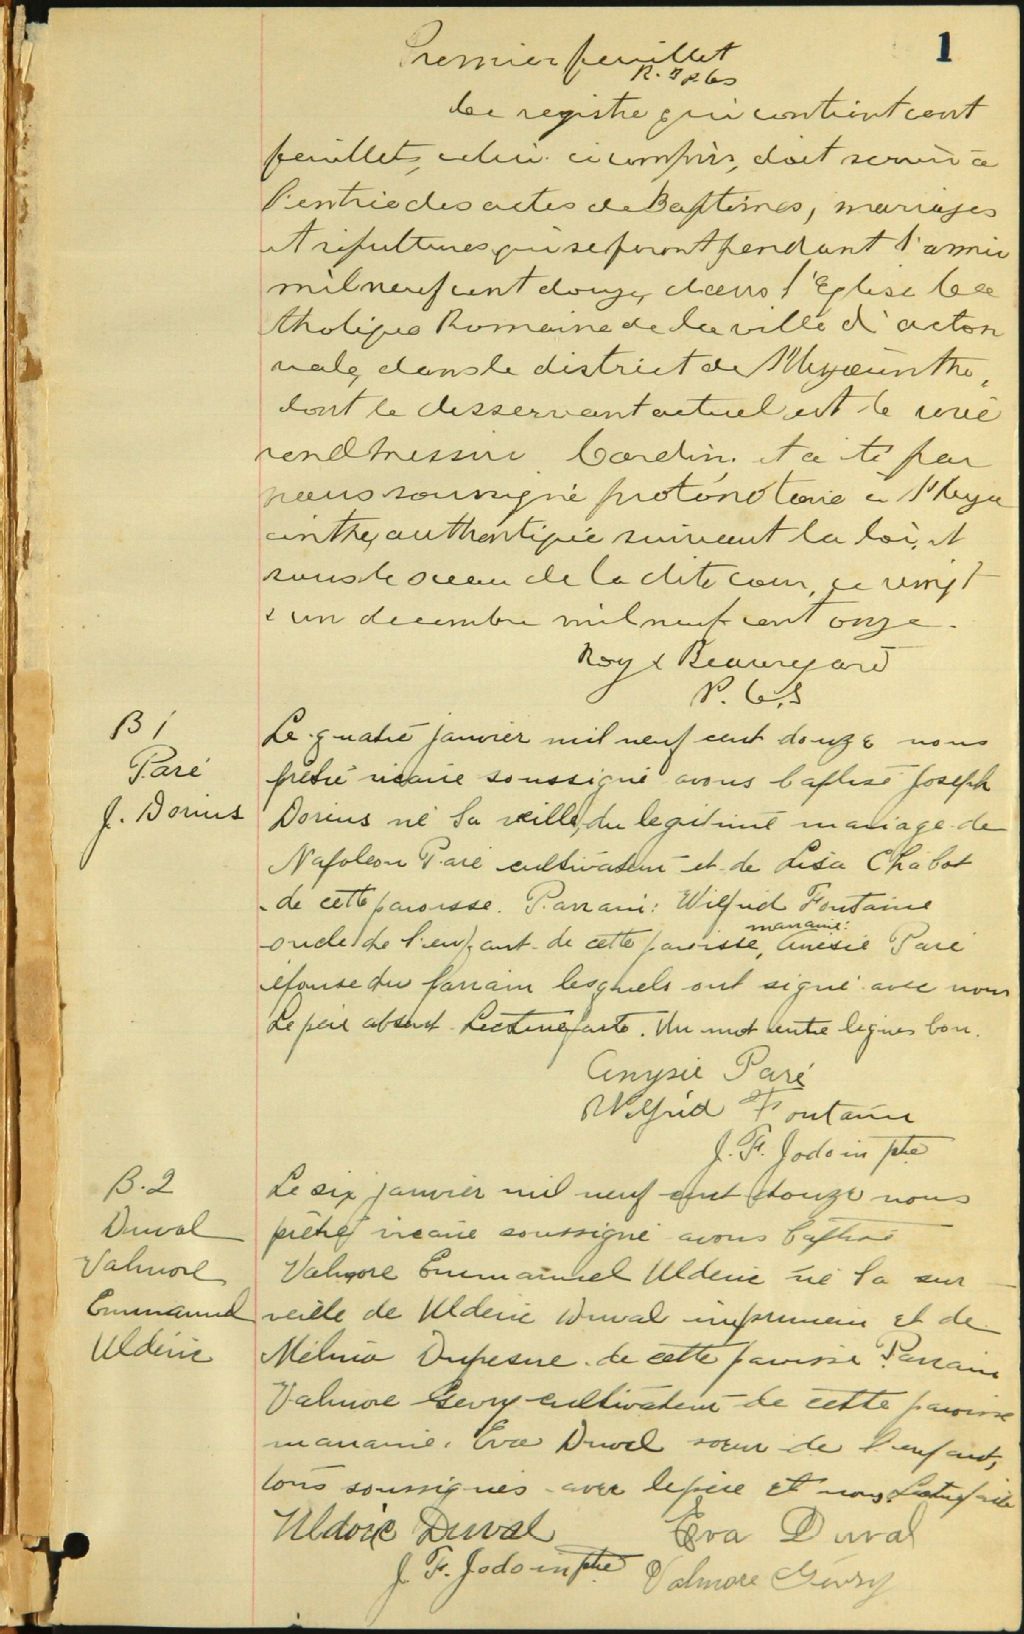 1
Premier feuillet
R. & B
Ce registre qui contient cent
feuillets, celui ci compris, doit servir à
l'entrée des actes de Baptêmes, mariages
et sépultures qui se feront pendant l'année
mil neuf cent douze, dans l'Eglise Ca
tholique Romaine de la ville d'acton
vale, dans le district de St Hyacinthe,
dont le desservant actuel est le révé
rend Messire Cardin. et a été par
nous soussigné protonotaire à St Hya
cinthe, authentiquée suivant la loi, et
sous le sceau de la dite cour, ce vingt
& un decembre mil neuf cent onze.
Roy & Beauregard
P. C. S
B 1
Paré
J. Dorius
Le quatre janvier mil neuf cent douze nous
prêtre vicaire soussigné avons baptisé Joseph
Dorius né la veille, du légitime mariage de
Napoleon Paré cultivateur et de Lisa Chabot
de cette paroisse. Parrain: Wilfrid Fontaine
marraine:
oncle de l'enfant de cette paroisse, Anésie Paré
épouse du parrain lesquels ont signé avec nous
Le père absent. Lecture faite. Un mot entre lignes bon.
Anysie Paré
Wilfrid Fontaine
J. F. Jodoin ptre
B. 2
Duval
Valmore
Emmanuel
Uldéric
Le six janvier mil neuf cent douze nous
prêtre vicaire soussigné avons baptisé
Valmore Emmanuel Ulderic né la sur
veille de Ulderic Duval imprimeur et de
Mélina Dufresne de cette paroisse. Parrain
Valmore Gevry cultivateur de cette paroisse
marraine. Eva Duval soeur de l'enfant,
tous soussignés avec le père et nous. Lecture faite
Uldoric Duval Eva Duval
J. F. Jodoin ptre Valmore Gévry